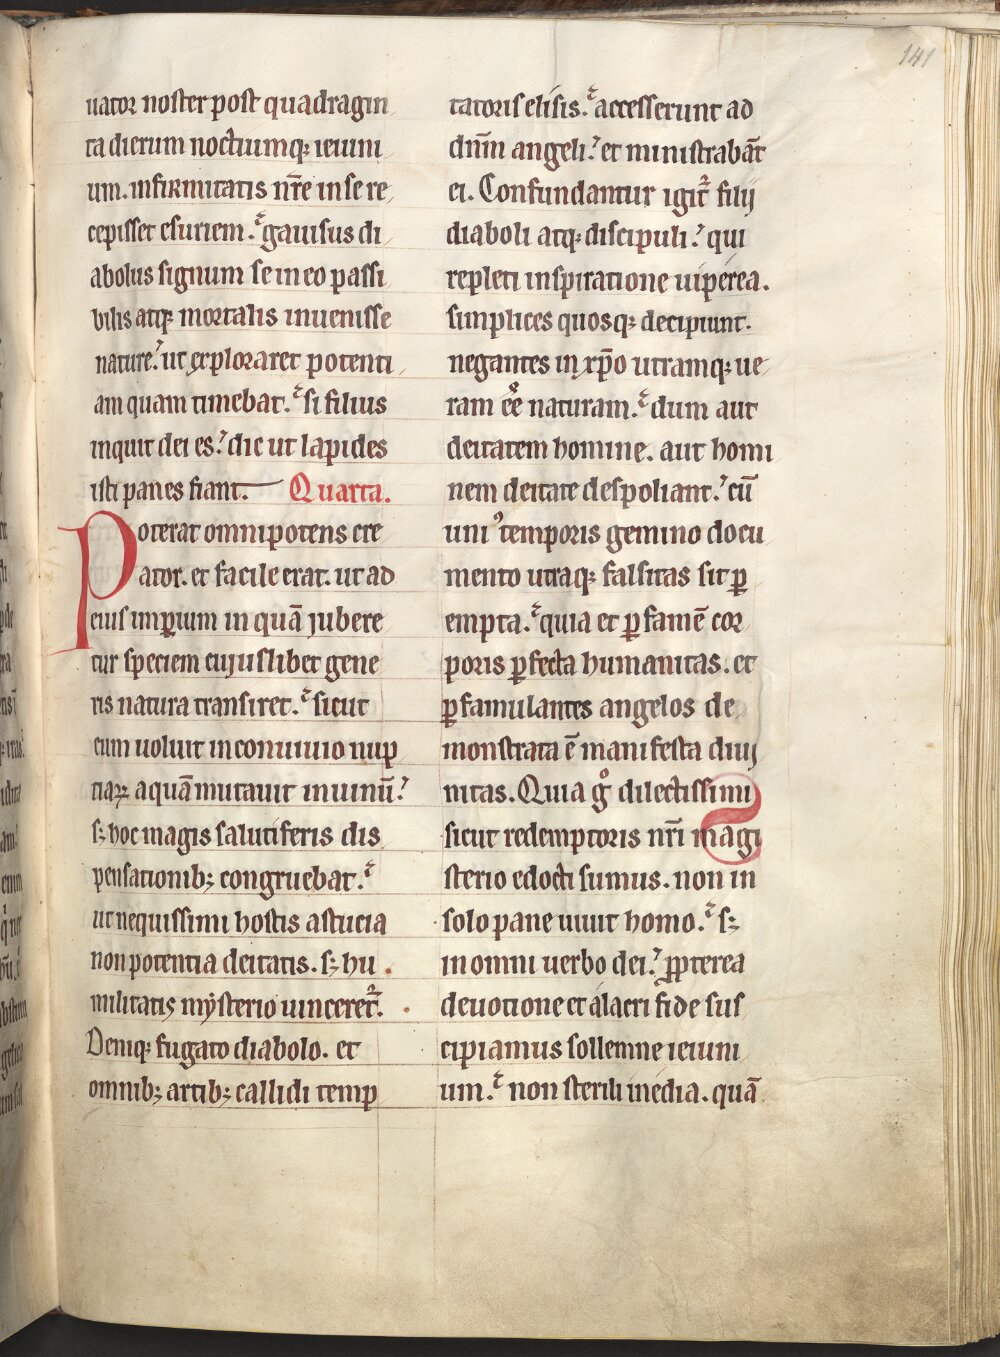 141
uator noster post quadragin
ta dierum noctiumq; ieiuni
um. infirmitatis nr̄e in se re
cepisset esuriem. gauisus di
abolus signum se in eo passi
bilis atq; mortalis inuenisse
nature. ut exploraret potenti
am quam timebat. si filius
inquit dei es. dic ut lapides
isti panes fiant. Quarta.
Poterat omnipotens cre
ator. et facile erat. ut ad
eius imꝑium in quā jubere
tur speciem cujuslibet gene
ris natura transiret. sicut
cum uoluit in conuiuio nup
tiaꝝ aquā mutauit in uinū.
sꝫ hoc magis salutiferis dis
pensationibꝫ congruebat.
ut nequissimi hostis astucia
non potentia deitatis. sꝫ hu
militatis mẏsterio uinceret᷑.
Deniq; fugato diabolo. et
omnibꝫ artibꝫ callidi temp
tatoris elisis. accesserunt ad
dn̄m angeli. et ministrabāt
ei. Confundantur igit᷑ filij
diaboli atq; discipuli. qui
repleti inspiratione uiperea.
simplices quosq; decipiunt.
negantes in xp̄o utramq; ue
ram eē naturam. dum aut
deitatem homine. aut homi
nem deitate despoliant. cū
uniꝰ temporis gemino docu
mento utraq; falsitas sit ꝑ
empta. quia et ꝑ famē cor
poris ꝑfecta humanitas. et
ꝑ famulantes angelos de
monstrata ē manifesta diuj
nitas. Quia gͦ dilectissimi
sicut redemptoris nr̄i magi
sterio edocti sumus. non in
solo pane uiuit homo. sꝫ
in omni uerbo dei. ꝓpterea
deuotione et alacri fide sus
cipiamus sollemne ieiuni
um. non sterili inedia. quā